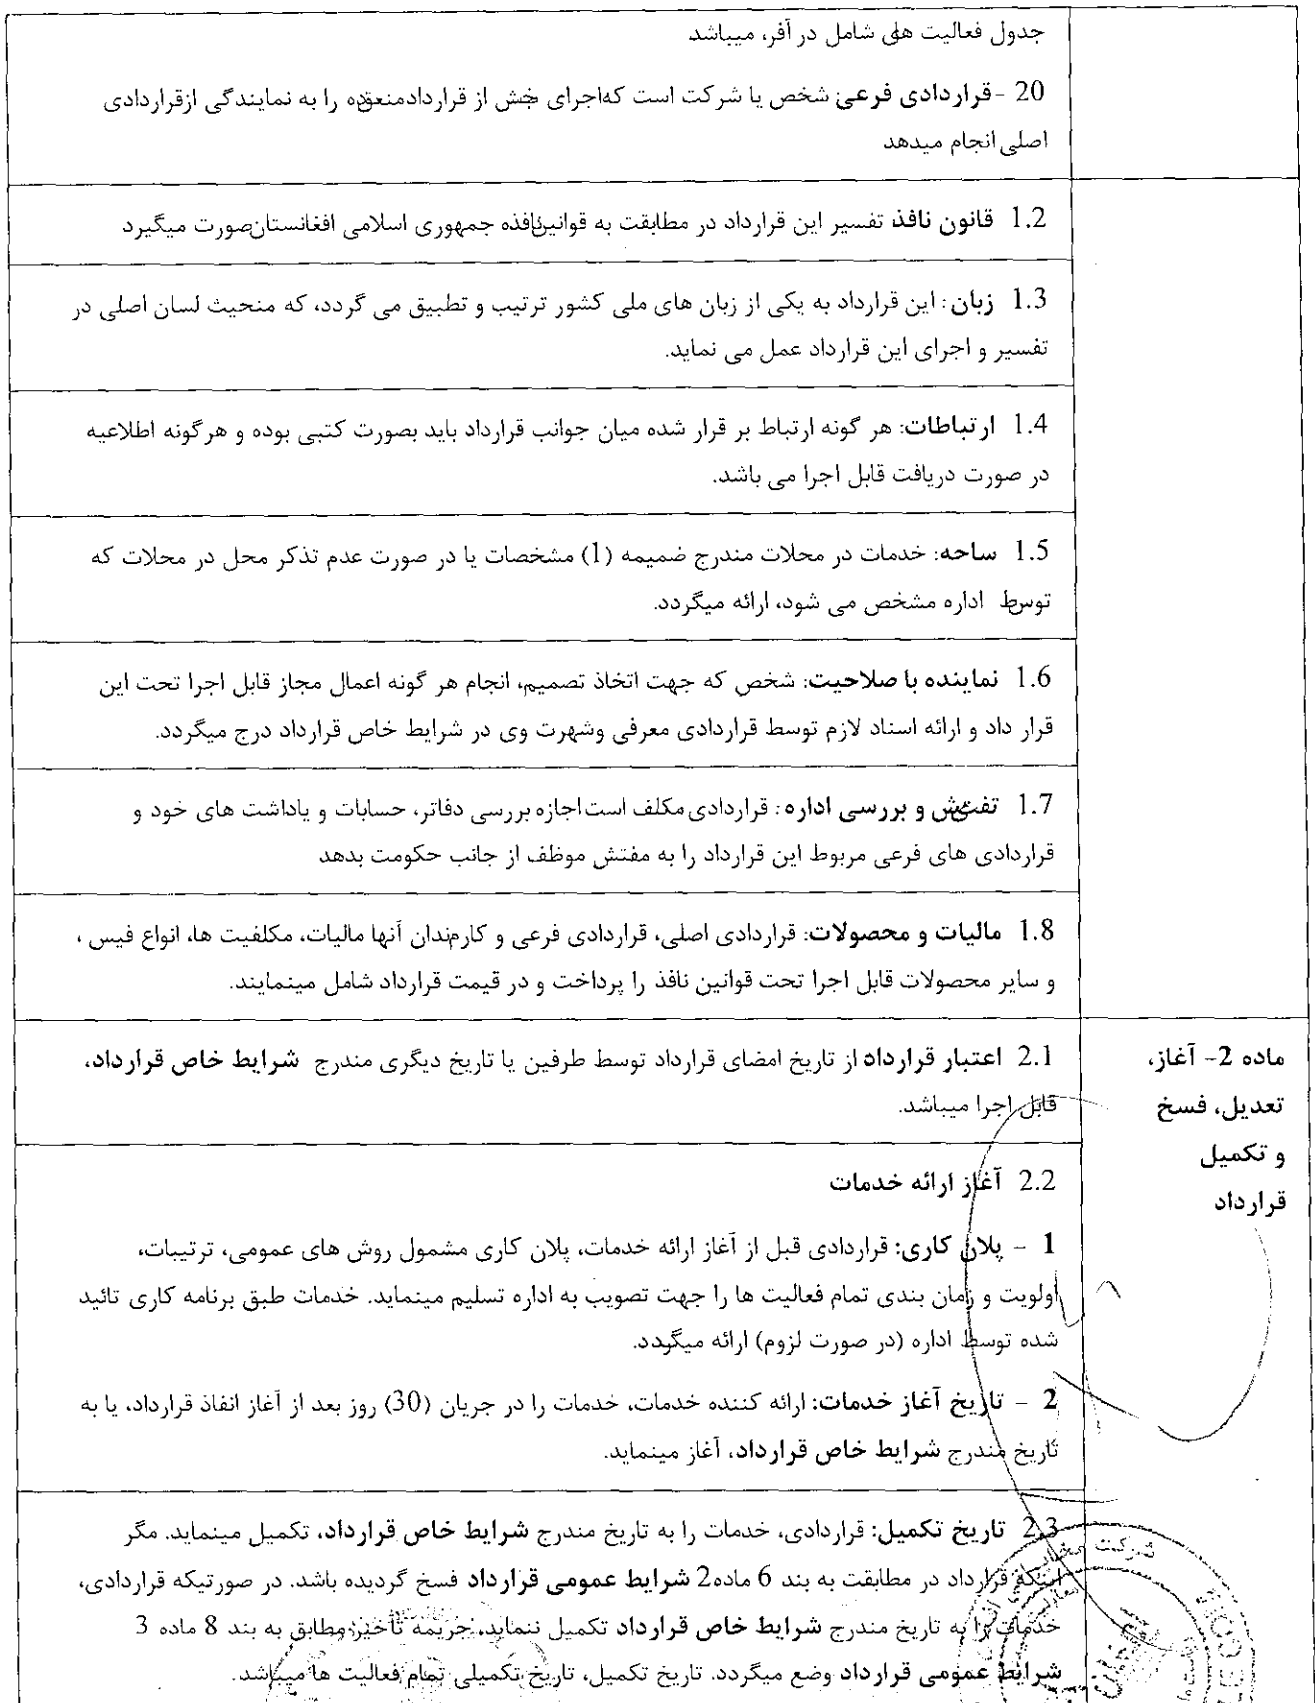 جدول فعالیت های شامل در آفر، میباشد
20 -قراردادی فرعی: شخص یا شرکت است که اجرای بخش از قرارداد منعقده را به نمایندگی از قراردادی
اصلی انجام میدهد
1.2 قانون نافذ تفسیر این قرارداد در مطابقت به قوانین نافذه جمهوری اسلامی افغانستان صورت میگیرد
1.3 زبان: این قرارداد به یکی از زبان های ملی کشور ترتیب و تطبیق می گردد، که منحیث لسان اصلی در
تفسیر و اجرای این قرارداد عمل می نماید.
1.4 ارتباطات: هر گونه ارتباط بر قرار شده میان جوانب قرارداد باید بصورت کتبی بوده و هرگونه اطلاعیه
در صورت دریافت قابل اجرا می باشد.
1.5 ساحه: خدمات در محلات مندرج ضمیمه (1) مشخصات یا در صورت عدم تذکر محل در محلات که
توسط اداره مشخص می شود، ارائه میگردد.
1.6 نماینده با صلاحیت: شخص که جهت اتخاذ تصمیم، انجام هر گونه اعمال مجاز قابل اجرا تحت این
قرار داد و ارائه اسناد لازم توسط قراردادی معرفی وشهرت وی در شرایط خاص قرارداد درج میگردد.
1.7 تفتیش و بررسی اداره: قراردادی مکلف است اجازه بررسی دفاتر، حسابات و یاداشت های خود و
قراردادی های فرعی مربوط این قرارداد را به مفتش موظف از جانب حکومت بدهد
1.8 مالیات و محصولات: قراردادی اصلی، قراردادی فرعی و کارمندان آنها مالیات، مکلفیت ها، انواع فیس ،
و سایر محصولات قابل اجرا تحت قوانین نافذ را پرداخت و در قیمت قرارداد شامل مینمایند.
ماده 2- آغاز،
تعدیل، فسخ
و تکمیل
قرارداد
2.1 اعتبار قرارداد از تاریخ امضای قرارداد توسط طرفین یا تاریخ دیگری مندرج شرایط خاص قرارداد،
قابل اجرا میباشد.
2.2 آغاز ارائه خدمات
1 - پلان کاری: قراردادی قبل از آغاز ارائه خدمات، پلان کاری مشمول روش های عمومی، ترتیبات،
اولویت و زمان بندی تمام فعالیت ها را جهت تصویب به اداره تسلیم مینماید. خدمات طبق برنامه کاری تائید
شده توسط اداره (در صورت لزوم) ارائه میگردد.
2 - تاریخ آغاز خدمات: ارائه کننده خدمات، خدمات را در جریان (30) روز بعد از آغاز انفاذ قرارداد، یا به
تاریخ مندرج شرایط خاص قرارداد، آغاز مینماید.
2.3 تاریخ تکمیل: قراردادی، خدمات را به تاریخ مندرج شرایط خاص قرارداد، تکمیل مینماید. مگر
اینکه قرارداد در مطابقت به بند 6 ماده2 شرایط عمومی قرارداد فسخ گردیده باشد. در صورتیکه قراردادی،
خدمات را به تاریخ مندرج شرایط خاص قرارداد تکمیل ننماید، جریمه تأخیر مطابق به بند 8 ماده 3
شرایط عمومی قرارداد وضع میگردد. تاریخ تکمیل، تاریخ تکمیلی تمام فعالیت ها میباشد.
شرکت